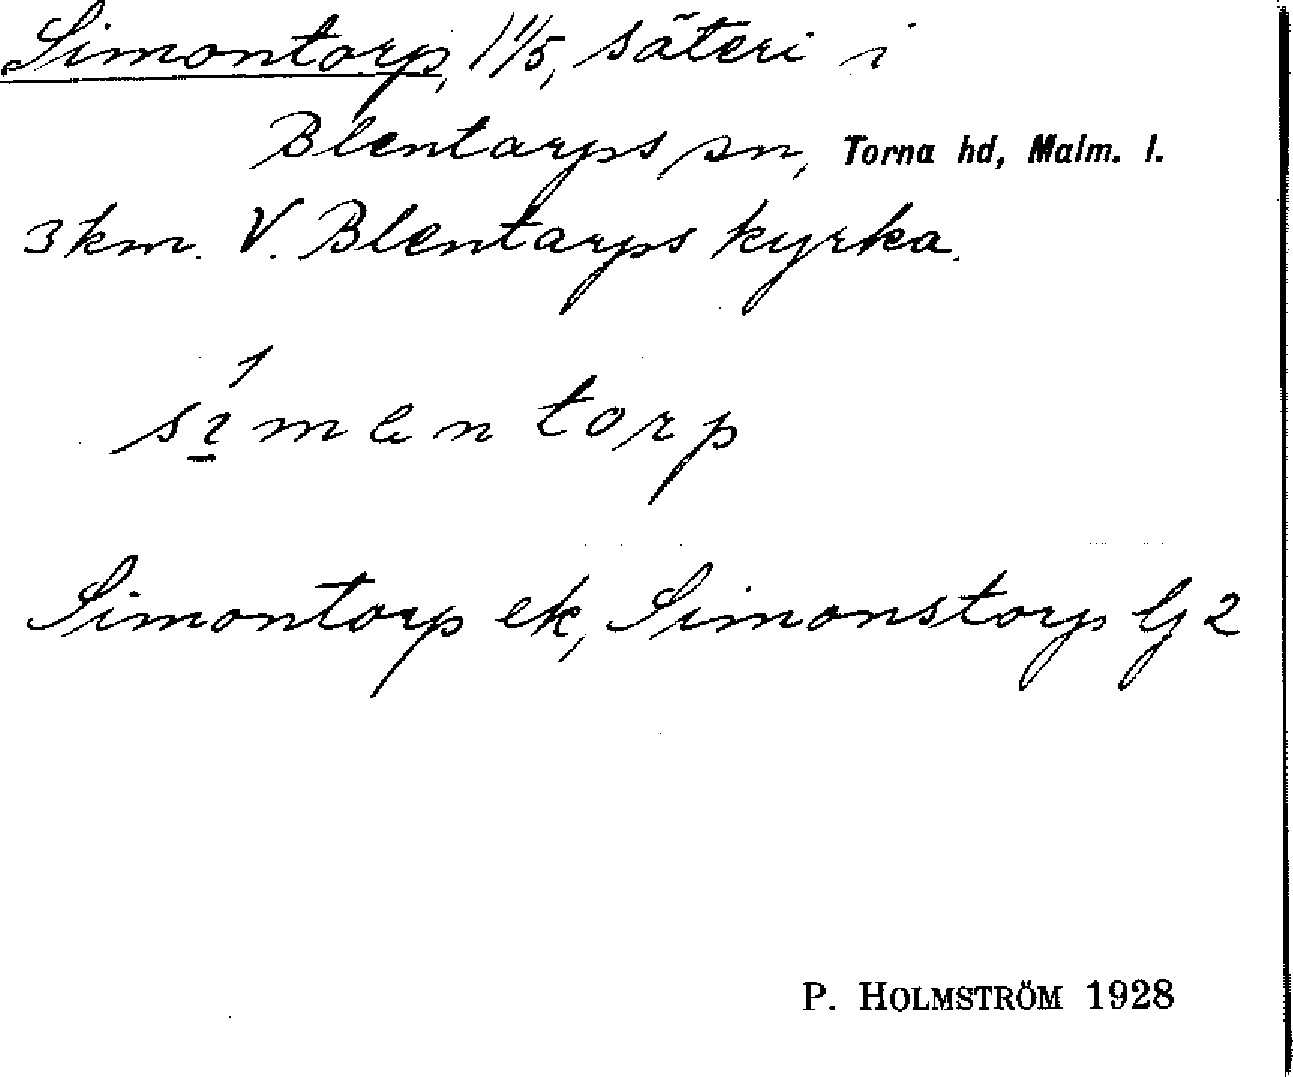 Simontorp, 1 1/5, säteri i
Blentarps sn, Torna hd, Malm. l.
3 km. V. Blentarps kyrka.
torp
Simontorp ek, Simonstorp Gj 2
P. HOLMSTRÖM 1928